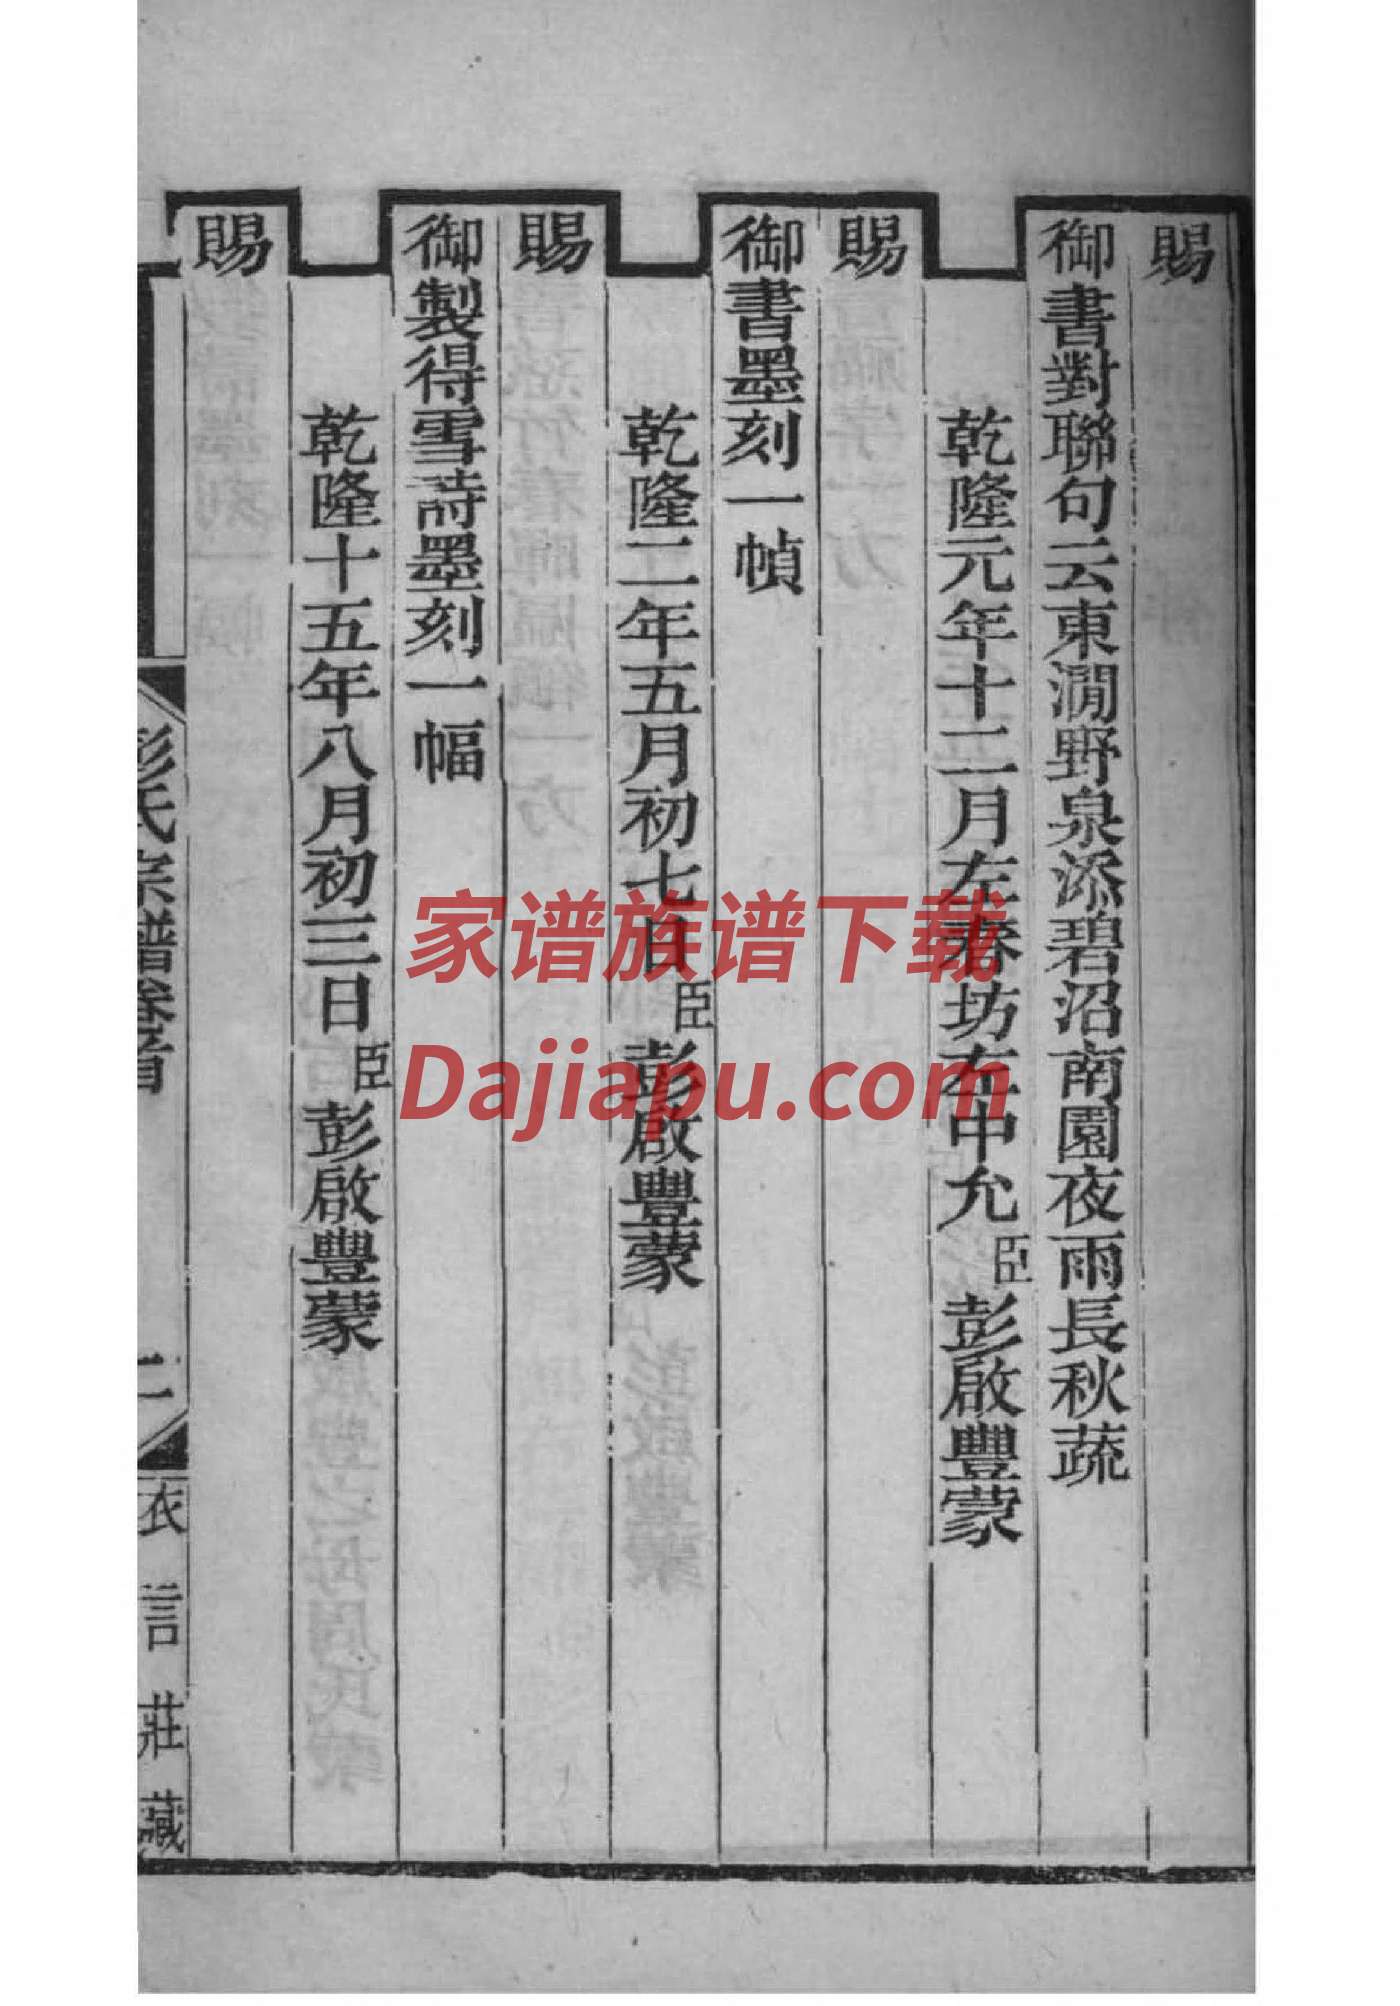 賜
御書對聯句云東澗野泉添碧沼南園夜雨長秋蔬
乾隆元年十二月左春坊左中允臣彭啟豐蒙
賜
御書墨刻一幀
乾隆二年五月初七日臣彭啟豐蒙
賜
御製得雪詩墨刻一幅
乾隆十五年八月初三日臣彭啟豐蒙
賜
彭氏宗譜卷首
二
衣言莊藏
家谱族谱下载
Dajiapu.com